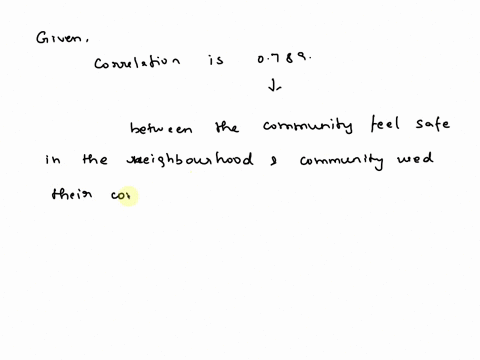 Given,
Correlation is 0.789.
↓
between the community feel safe
in the neighbourhood & community wed
their co